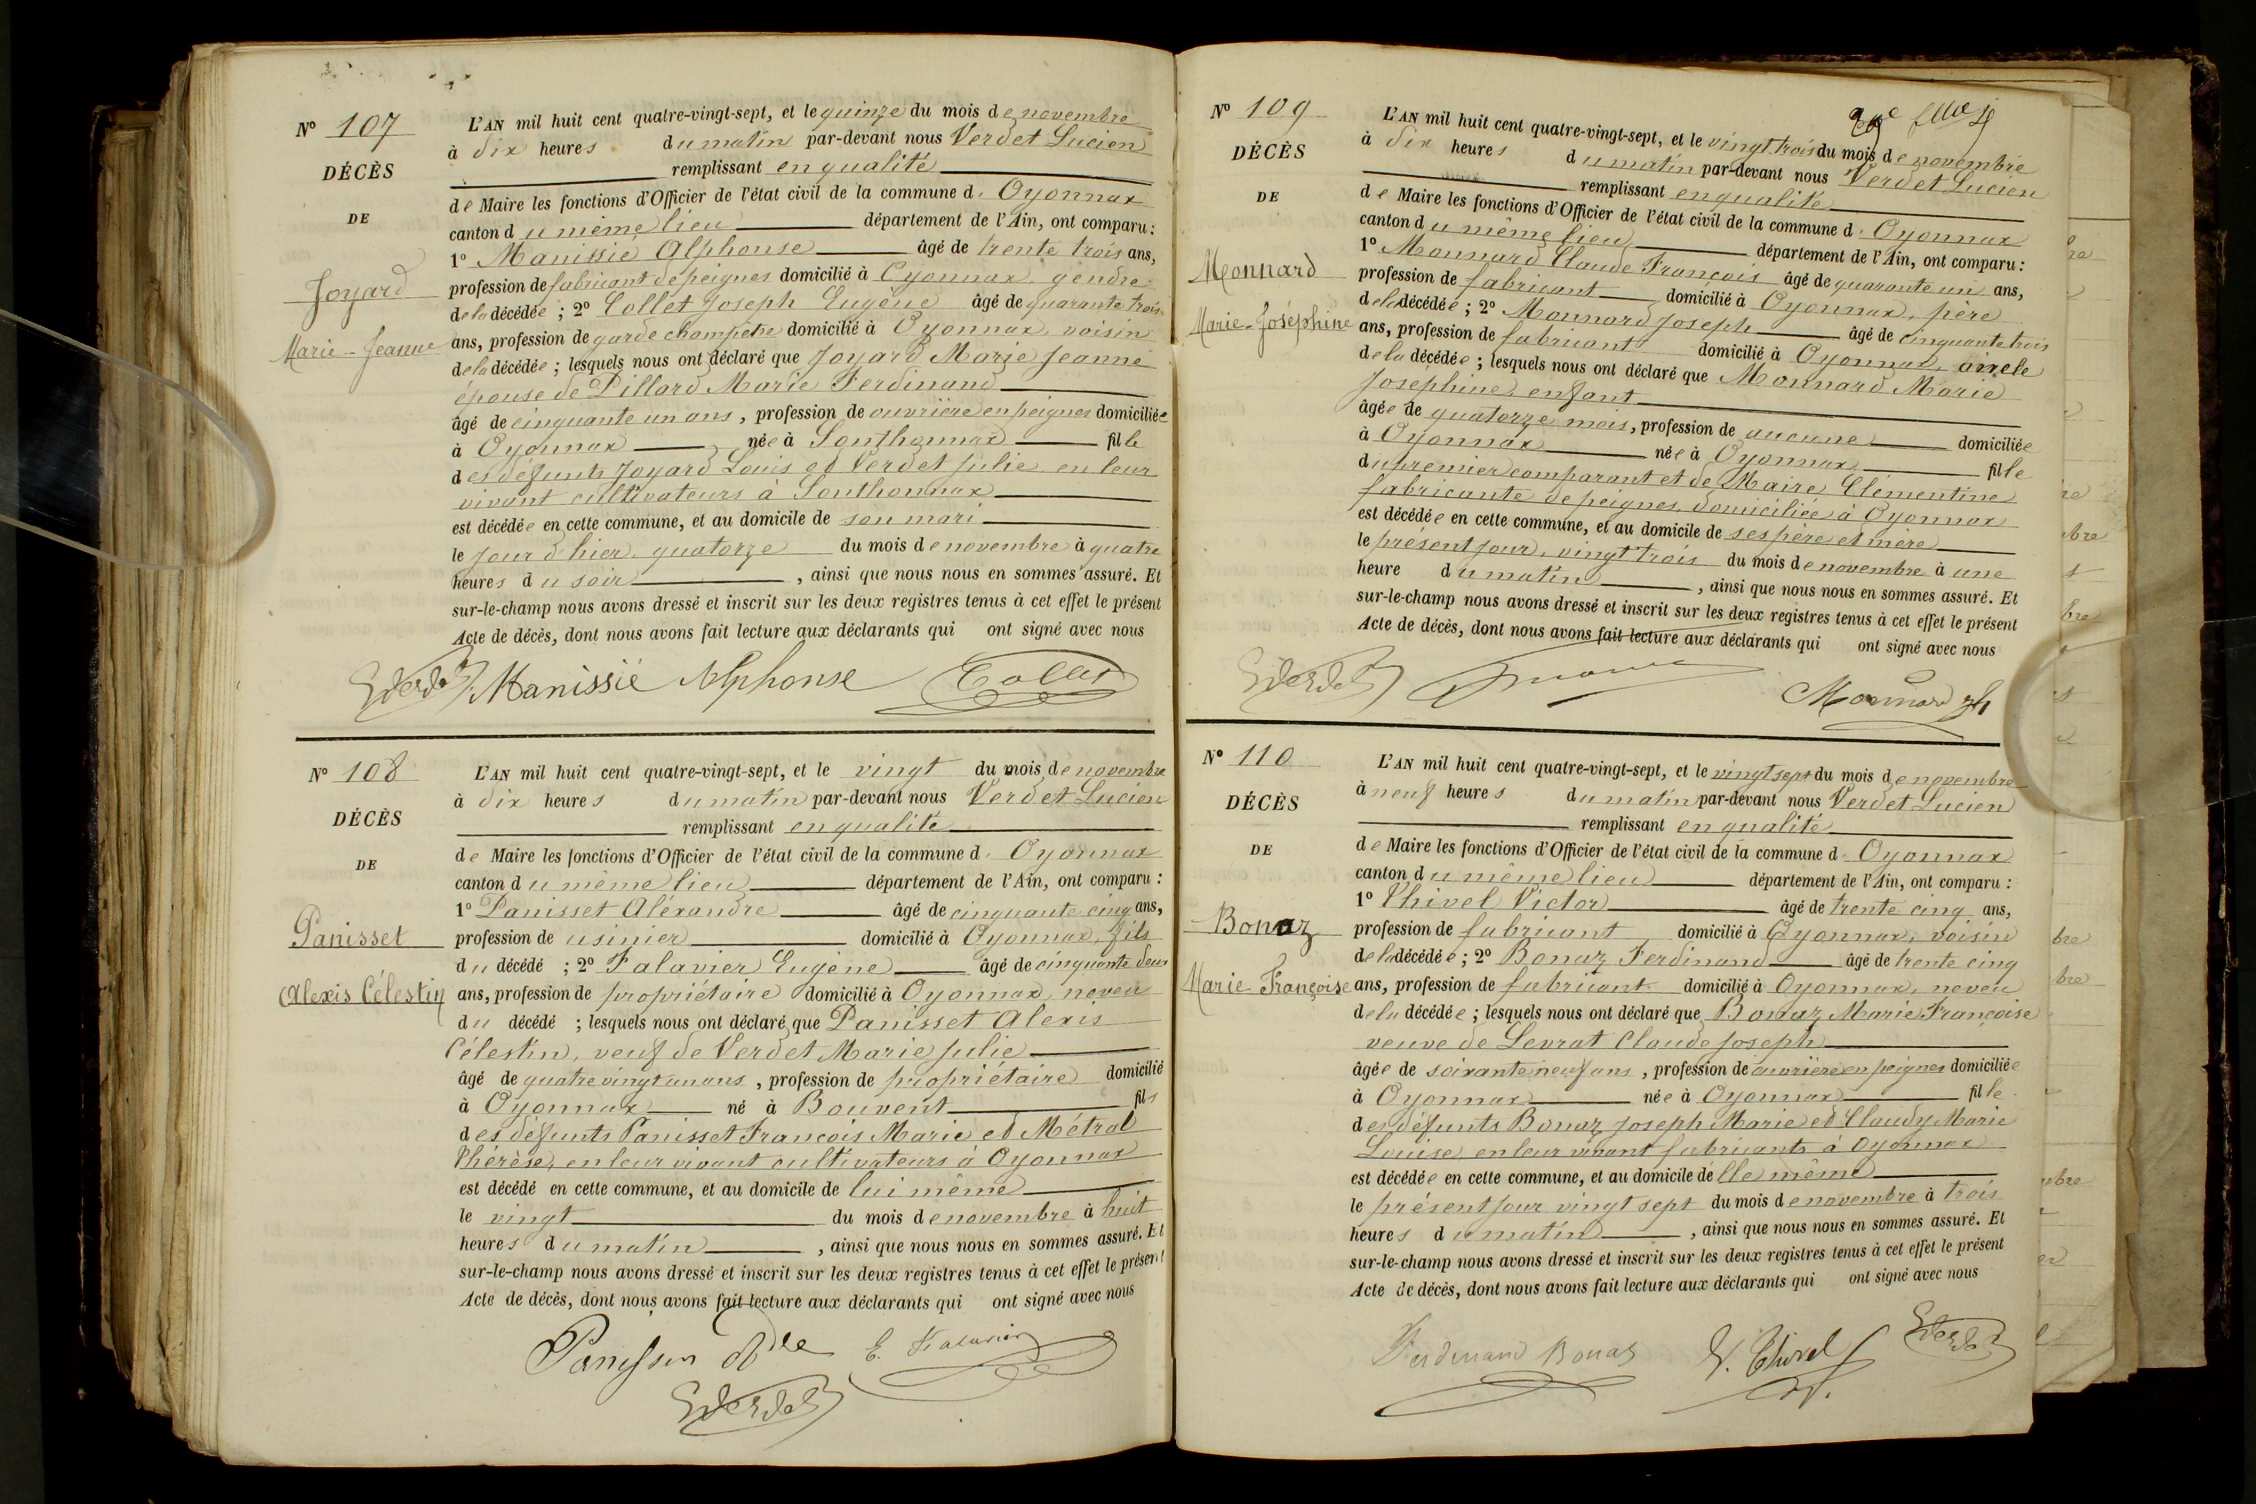 N° 107
DÉCÈS
DE
Joyard
Marie-Jeanne
L'AN mil huit cent quatre-vingt-sept, et le quinze du mois de novembre
à dix heures du matin par-devant nous Verdet Lucien
remplissant en qualité
de Maire les fonctions d'Officier de l'état civil de la commune d. Oyonnax
canton du même lieu département de l'Ain, ont comparu :
1° Manissié Alphonse âgé de trente trois ans,
profession de fabricant de peignes domicilié à Oyonnax, gendre
de la décédée ; 2° Collet Joseph Eugène âgé de quarante trois
ans, profession de garde champêtre domicilié à Oyonnax, voisin
de la décédée ; lesquels nous ont déclaré que Joyard Marie Jeanne
épouse de Pillard Marie Ferdinand
âgé de cinquante un ans, profession de ouvrière en peignes domiciliée
à Oyonnax née à Sonthonnax fille
des défunts Joyard Louis et Verdet Julie en leur
vivant cultivateurs à Sonthonnax
est décédée en cette commune, et au domicile de son mari
le jour d'hier, quatorze du mois de novembre à quatre
heures du soir , ainsi que nous nous en sommes assuré. Et
sur-le-champ nous avons dressé et inscrit sur les deux registres tenus à cet effet le présent
Acte de décès, dont nous avons fait lecture aux déclarants qui ont signé avec nous
Verdet Manissié Alphonse Collet
N° 108
DÉCÈS
DE
Panisset
Alexis Célestin
L'AN mil huit cent quatre-vingt-sept, et le vingt du mois de novembre
à dix heures du matin par-devant nous Verdet Lucien
remplissant en qualité
de Maire les fonctions d'Officier de l'état civil de la commune d. Oyonnax
canton du même lieu département de l'Ain, ont comparu :
1° Panisset Aléxandre âgé de cinquante cinq ans,
profession de usinier domicilié à Oyonnax, fils
du décédé ; 2° Falavier Eugène âgé de cinquante deux
ans, profession de propriétaire domicilié à Oyonnax, neveu
du décédé ; lesquels nous ont déclaré que Panisset Alexis
Célestin, veuf de Verdet Marie Julie
âgé de quatre vingt un ans, profession de propriétaire domicilié
à Oyonnax né à Bouvent fils
des défunts Panisset François Marie et Métral
Thérèse, en leur vivant cultivateurs à Oyonnax
est décédé en cette commune, et au domicile de lui même
le vingt du mois de novembre à huit
heures du matin , ainsi que nous nous en sommes assuré. Et
sur-le-champ nous avons dressé et inscrit sur les deux registres tenus à cet effet le présent
Acte de décès, dont nous avons fait lecture aux déclarants qui ont signé avec nous
E. Falavier
Verdet
N° 109
DÉCÈS
DE
Monnard
Marie-Joséphine
L'AN mil huit cent quatre-vingt-sept, et le vingt trois du mois de novembre
à dix heures du matin par-devant nous Verdet Lucien
remplissant en qualité
de Maire les fonctions d'Officier de l'état civil de la commune d. Oyonnax
canton du même lieu département de l'Ain, ont comparu :
1° Monnard Claude François âgé de quarante un ans,
profession de fabricant domicilié à Oyonnax, père
de la décédée ; 2° Monnard Joseph âgé de cinquante trois
ans, profession de fabricant domicilié à Oyonnax, oncle
de la décédée ; lesquels nous ont déclaré que Monnard Marie
Joséphine, enfant
âgée de quatorze mois, profession de aucune domiciliée
à Oyonnax née à Oyonnax fille
du premier comparant et de Maire Clémentine
fabricante de peignes, domiciliée à Oyonnax
est décédée en cette commune, et au domicile de ses père et mère
le présent jour, vingt trois du mois de novembre à une
heure du matin , ainsi que nous nous en sommes assuré. Et
sur-le-champ nous avons dressé et inscrit sur les deux registres tenus à cet effet le présent
Acte de décès, dont nous avons fait lecture aux déclarants qui ont signé avec nous
Verdet Monnard jh
N° 110
DÉCÈS
DE
Bonaz
Marie Françoise
L'AN mil huit cent quatre-vingt-sept, et le vingt sept du mois de novembre
à neuf heures du matin par-devant nous Verdet Lucien
remplissant en qualité
de Maire les fonctions d'Officier de l'état civil de la commune d. Oyonnax
canton du même lieu département de l'Ain, ont comparu :
1° Thivel Victor âgé de trente cinq ans,
profession de fabricant domicilié à Oyonnax, voisin
de la décédée ; 2° Bonaz Ferdinand âgé de trente cinq
ans, profession de fabricant domicilié à Oyonnax, neveu
de la décédée ; lesquels nous ont déclaré que Bonaz Marie Françoise
veuve de Levrat Claude Joseph
âgée de soixante neuf ans, profession de ouvrière en peignes domiciliée
à Oyonnax née à Oyonnax fille
des défunts Bonaz Joseph Marie et Claudy Marie
Louise, en leur vivant fabricants à Oyonnax
est décédée en cette commune, et au domicile de lle même
le présent jour vingt sept du mois de novembre à trois
heures du matin , ainsi que nous nous en sommes assuré. Et
sur-le-champ nous avons dressé et inscrit sur les deux registres tenus à cet effet le présent
Acte de décès, dont nous avons fait lecture aux déclarants qui ont signé avec nous
Ferdinand Bonaz V. Thivel Verdet